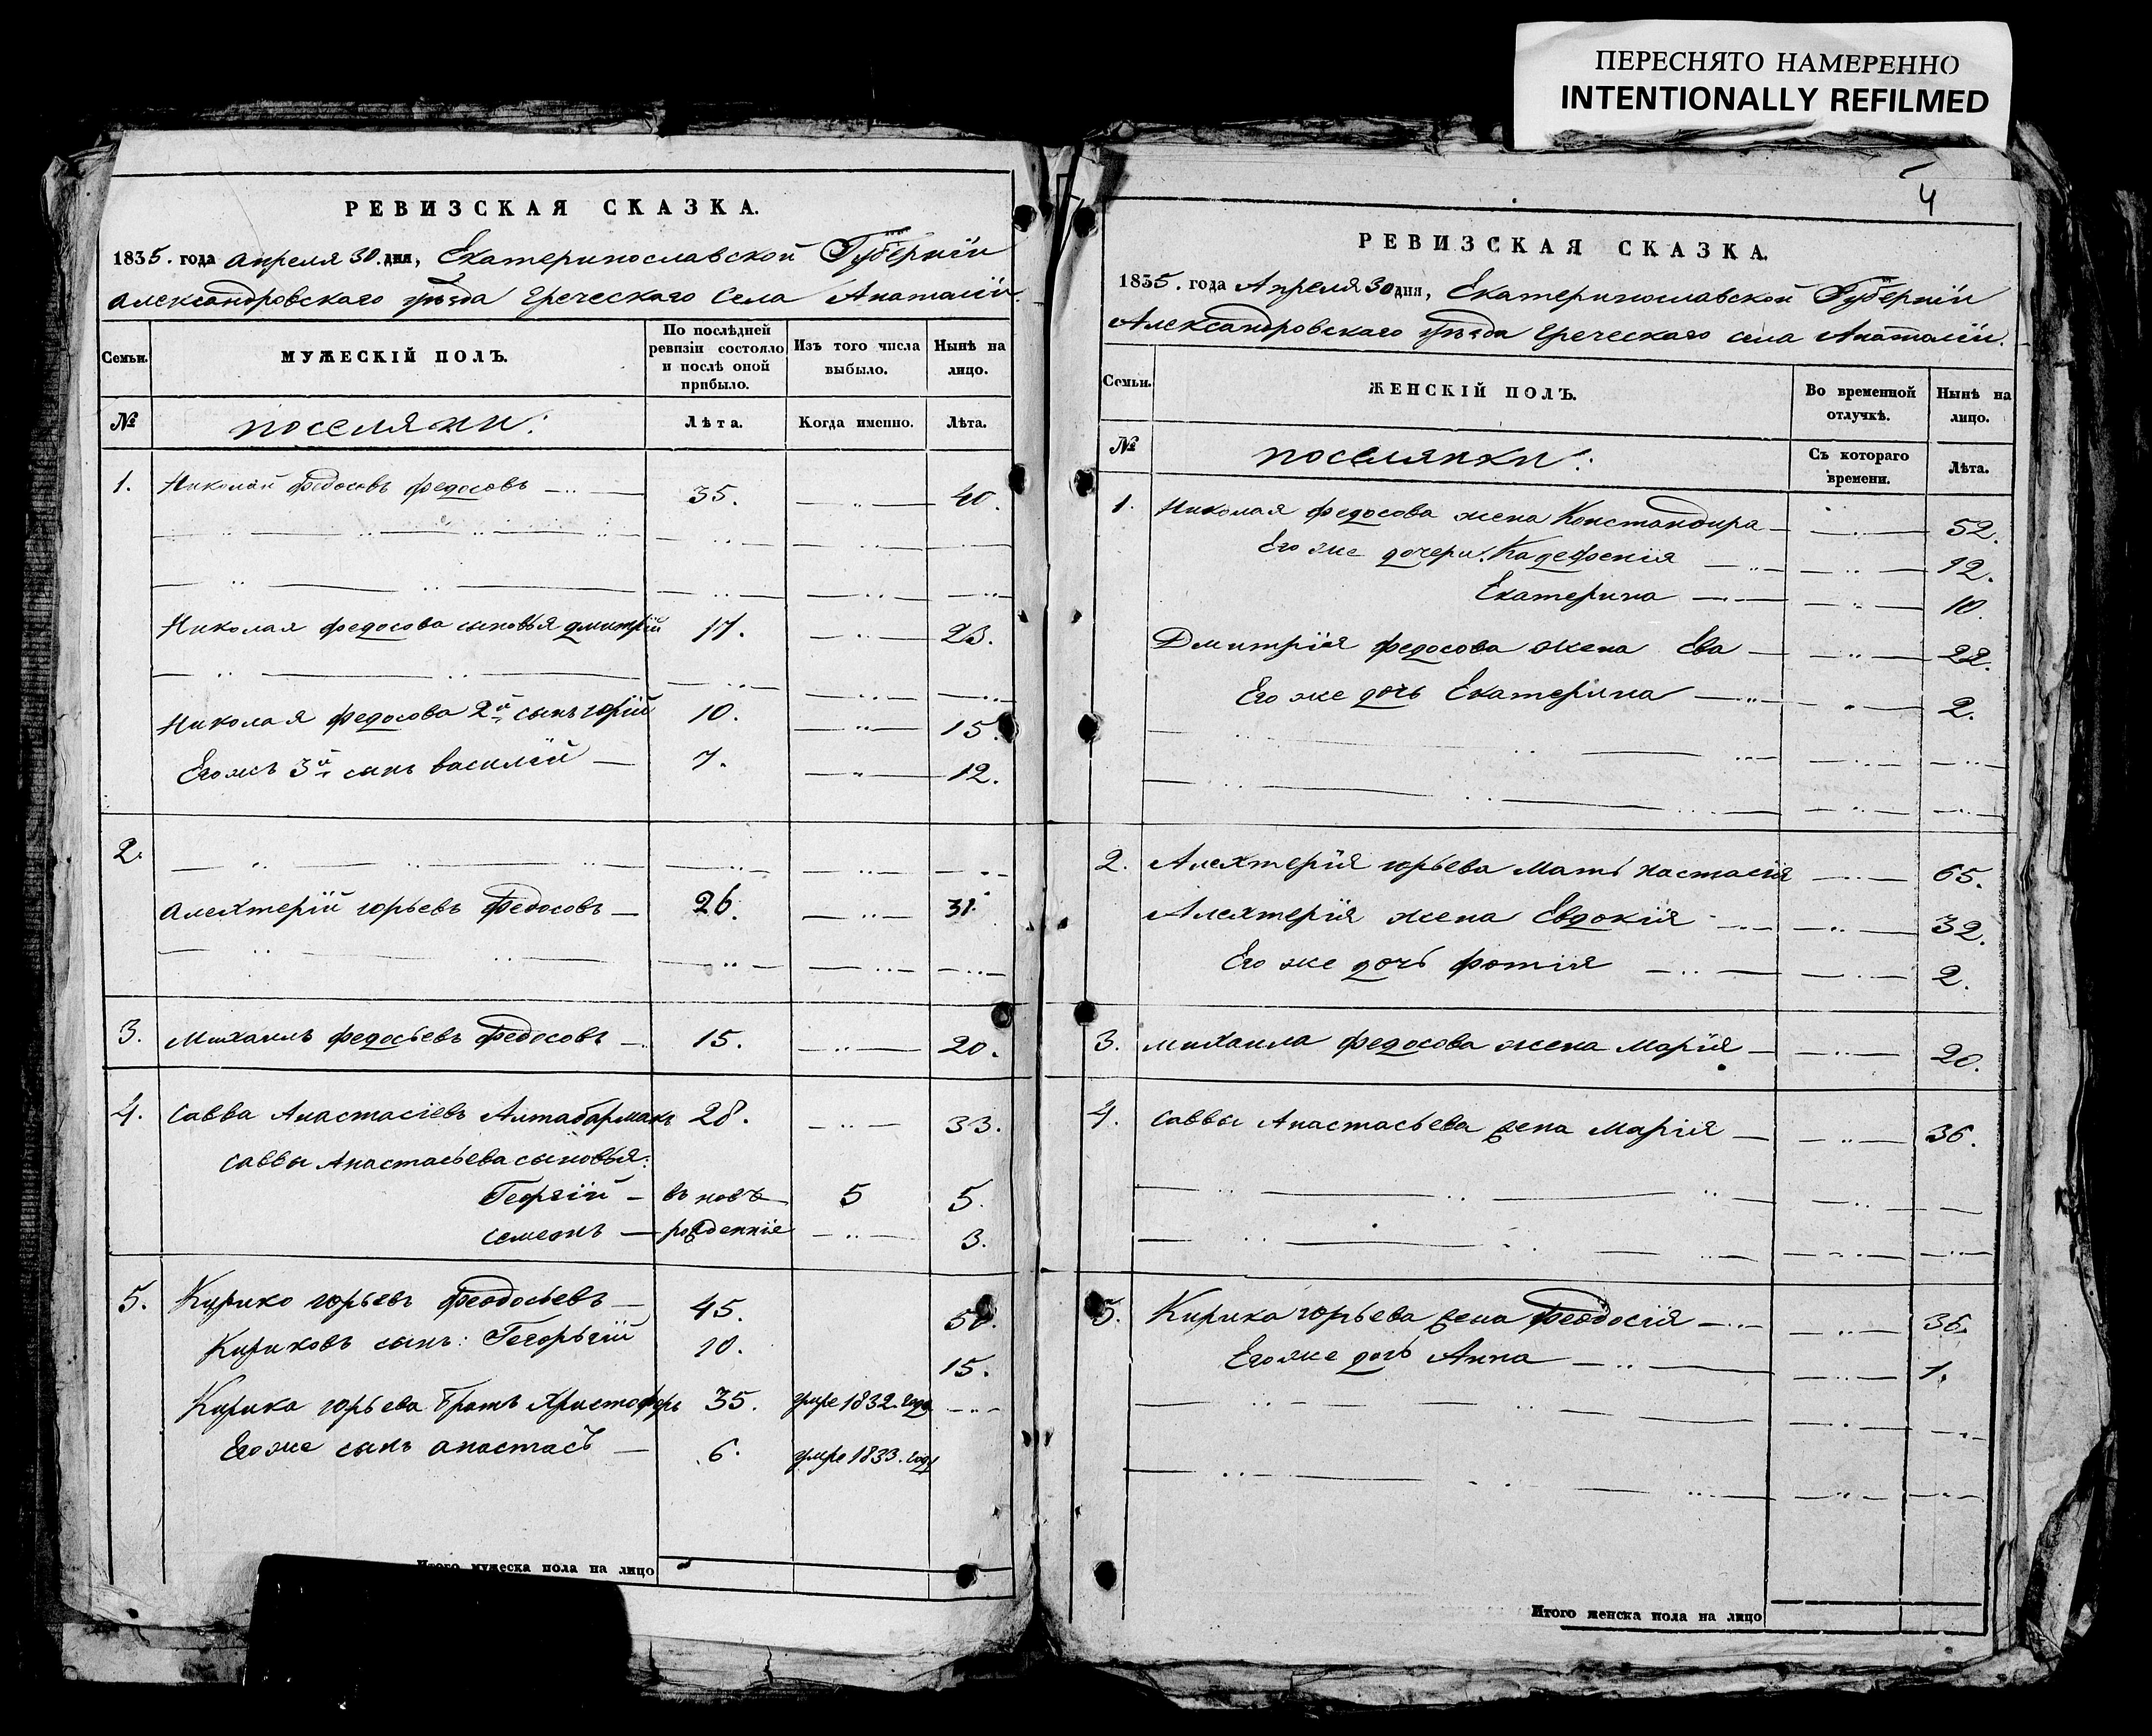 ПЕРЕСНЯТО НАМЕРЕННО
INTENTIONALLY REFILMED
РЕВИЗСКАЯ СКАЗКА.
1835. года апреля 30. дня, Екатеринославской Губерніи
Александровскаго уѣзда Греческаго Села Анатоліи.
Семьи. МУЖЕСКІЙ ПОЛЪ. По послѣдней ревизіи состояло и послѣ оной прибыло. Изъ того числа выбыло. Нынѣ на лицо.
№ поселяни: Лѣта. Когда именно. Лѣта.
1. Николай Федосовъ Федосовъ 35. 40.
Николая Федосова сыновья Дмитрій 17. 23.
Николая Федосова 2й сынъ Юрій 10. 15.
Егожъ 3й сынъ Василій 7. 12.
2.
Алехтерій Юрьевъ Федосовъ 26. 31.
3. Михаилъ Федосьевъ Федосовъ 15. 20.
4. Савва Анастасіевъ Алтабармакъ 28. 33.
Саввы Анастасьева сыновья:
Георгій въ новъ 5 5.
Семенъ рожденніе 3.
5. Кирико Юрьевъ Феодосьевъ 45. 50.
Кириковъ сынъ: Геюрьгій 10. 15.
Кирика Юрьева братъ Христофоръ 35. умре 1832. года
Егоже сынъ Анастасъ 6. умре 1833. году
4
РЕВИЗСКАЯ СКАЗКА.
1835. года Апреля 30 дня, Екатеринославской Губерніи
Александровскаго уѣзда Греческаго села Анатоліи.
Семьи. ЖЕНСКІЙ ПОЛЪ. Во временной отлучкѣ. Нынѣ на лицо.
№ поселянки: Съ котораго времени. Лѣта.
1. Николая Федосова жена Констандира 52.
Его же дочери: Кадефенія 12.
Екатерина 10.
Дмитрія Федосова жена Ева 22.
Его же дочь Екатерина 2.
2. Алехтерія Юрьева Мать Настасія 65.
Алехтерія жена Евдокія 32.
Его же дочь Фотія 2.
3. Михаила Федосова жена Марія 20.
4. Саввы Анастасьева жена Марія 36.
5. Кирика Юрьева жена Феодосія 36.
Егоже дочь Анна 1.
Итого мужеска пола на лицо
Итого женска пола на лицо